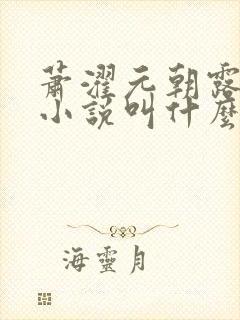 萧濯元朝露
小説叫什麽
海靈月